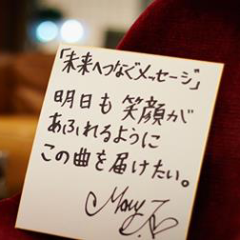 「未来へつなぐメッセージ」
明日も 笑顔が
あふれるように
この曲を届けたい。